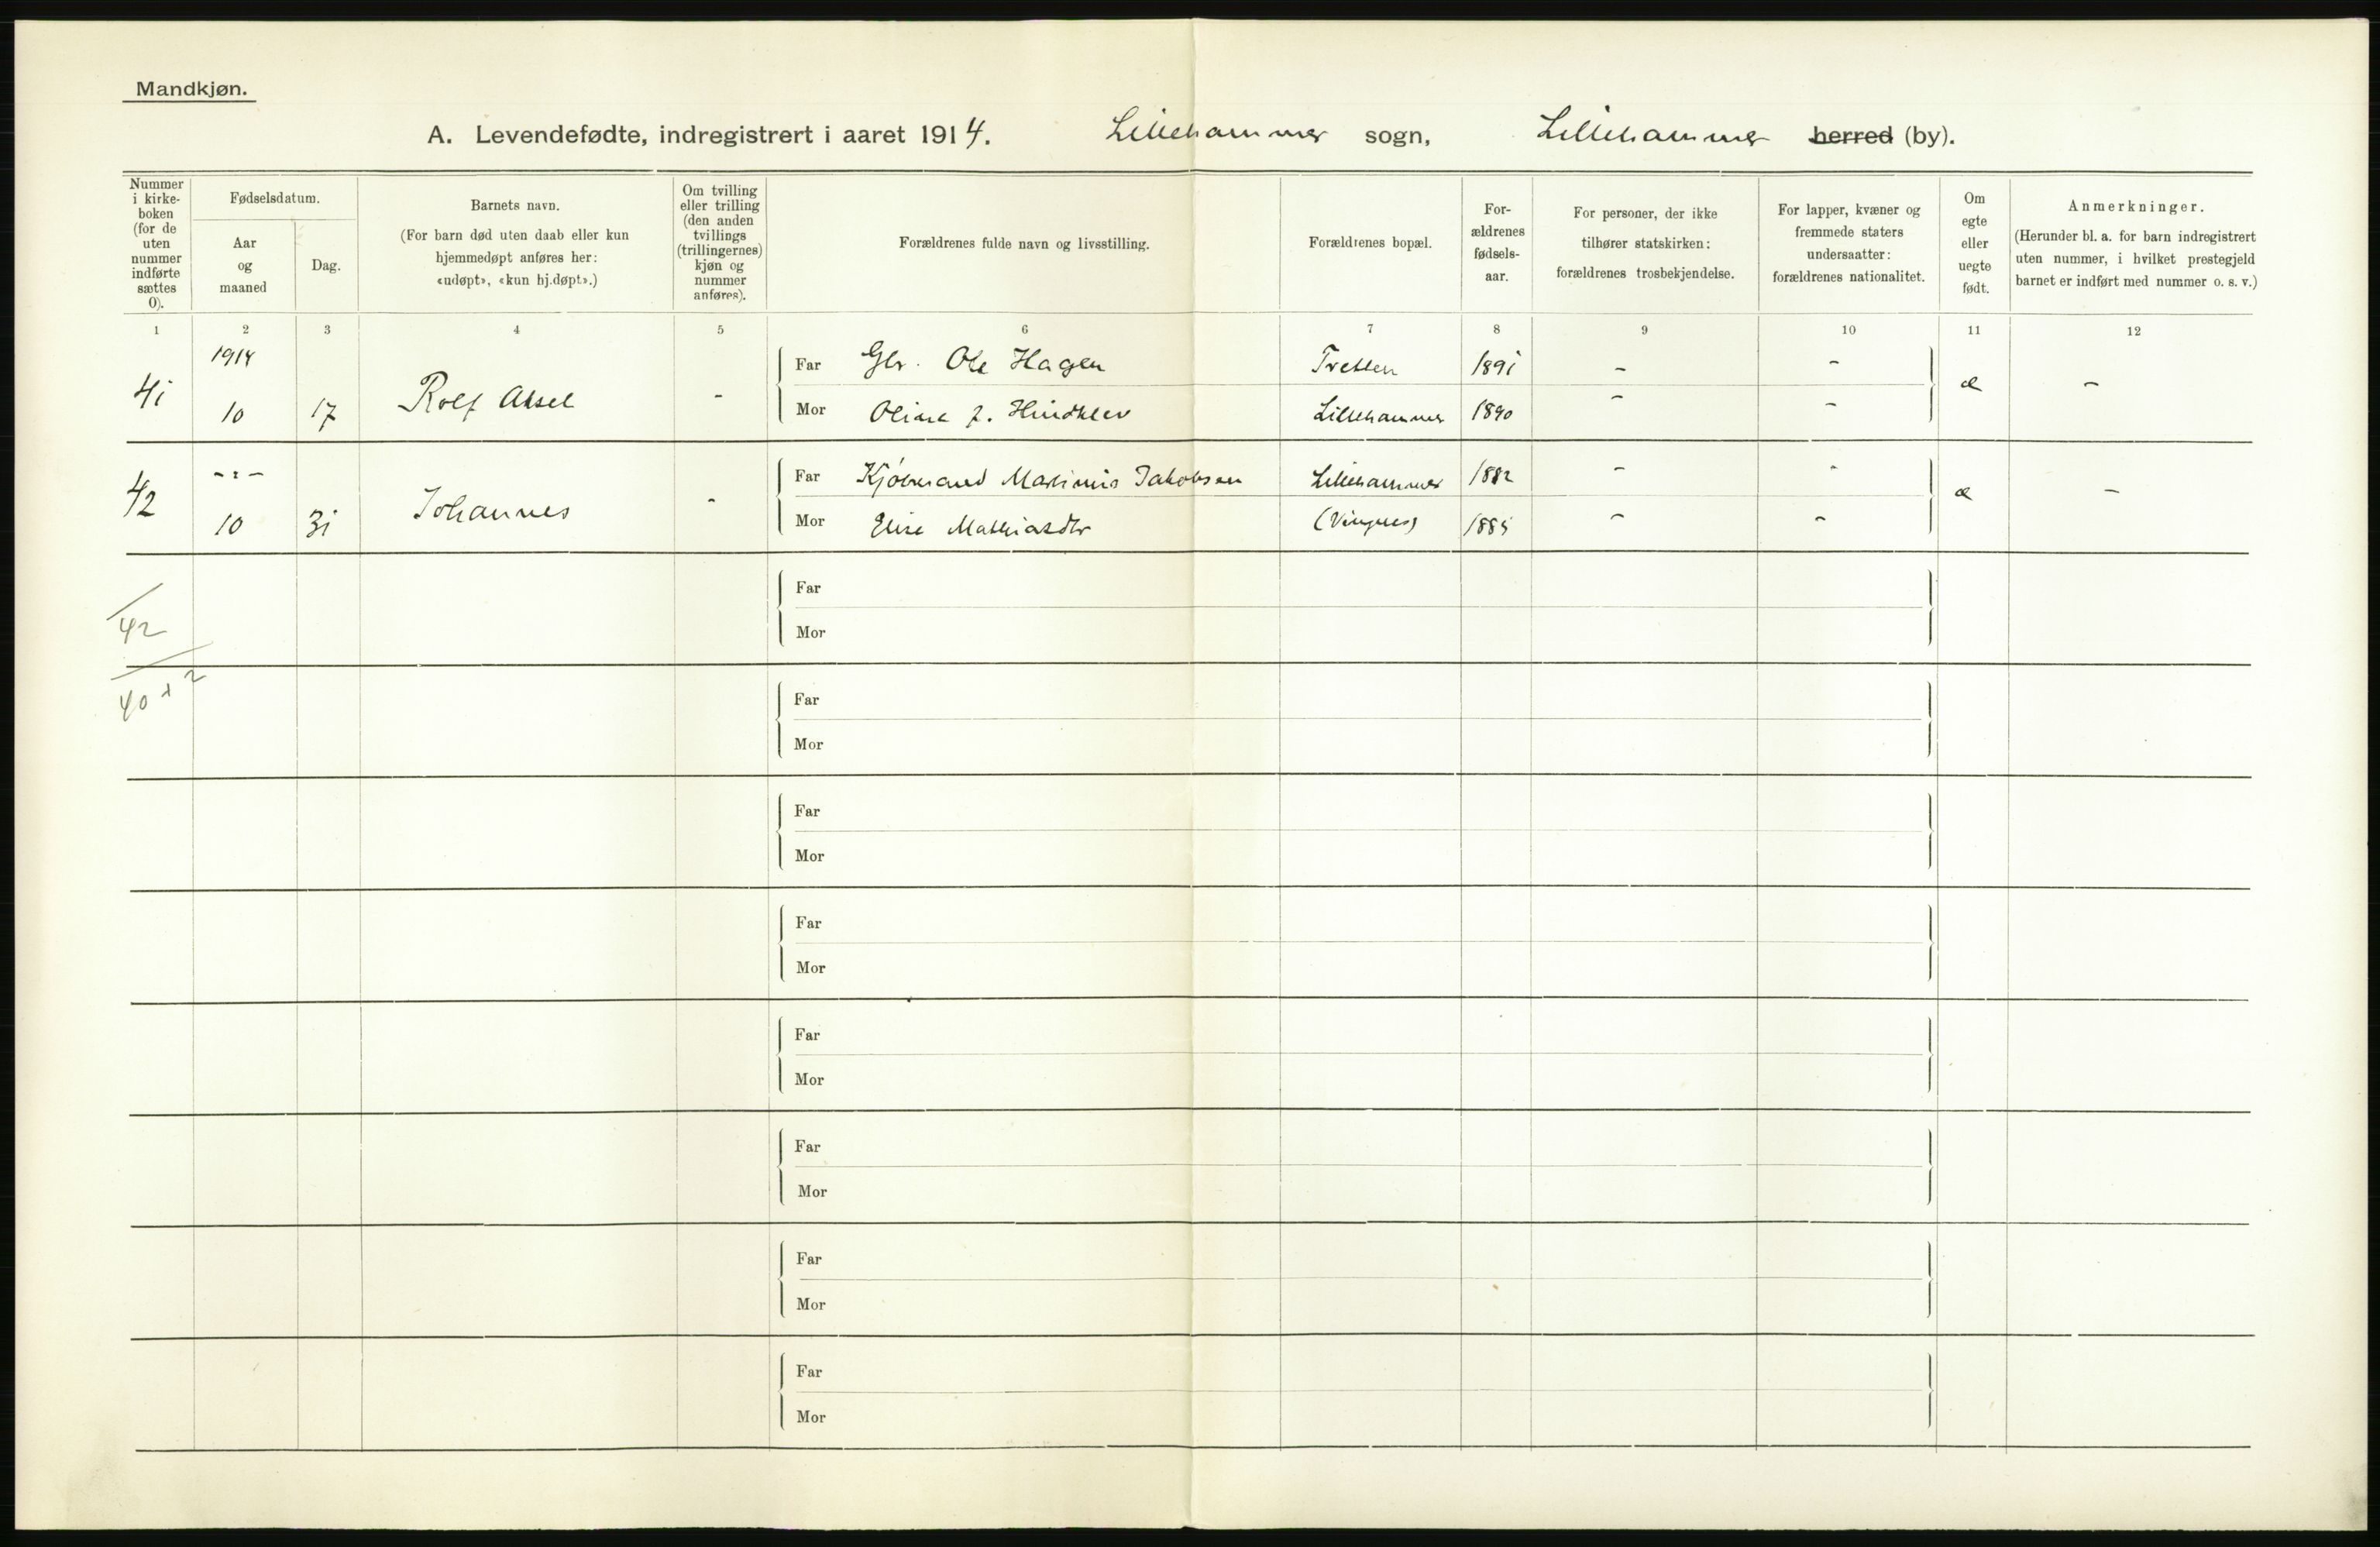 Mandkjøn.
A. Levendefødte, indregistrert i aaret 1914. Lillehammer sogn, Lillehammer herred (by).
Nummer i kirke-boken (for de uten nummer indførte sættes 0).
Fødselsdatum.
Aar og maaned
Dag.
Barnets navn.
(For barn død uten daab eller kun hjemmedøpt anføres her: «udøpt», «kun hj.døpt».)
Om tvilling eller trilling (den anden tvillings (trillingernes) kjøn og nummer anføres).
Forældrenes fulde navn og livsstilling.
Forældrenes bopæl.
For-ældrenes fødsels-aar.
For personer, der ikke tilhører statskirken: forældrenes trosbekjendelse.
For lapper, kvæner og fremmede staters undersaatter: forældrenes nationalitet.
Om egte eller uegte født.
Anmerkninger.
(Herunder bl. a. for barn indregistrert uten nummer, i hvilket prestegjeld barnet er indført med nummer o. s. v.)
1 2 3 4 5 6 7 8 9 10 11 12
1914
41 10 17 Rolf Aksel -
Far Gbr. Ole Hagen Tretten 1891 - -
Mor Oline f. Hindklev Lillehammer 1890 - -
æ -
-:-
42 10 31 Johannes -
Far Kjøbmand Marinius Jakobsen Lillehammer 1882 - -
Mor Elise Mathiasdtr (Vingnes) 1885 - -
æ -
42
40 + 2
Far
Mor
Far
Mor
Far
Mor
Far
Mor
Far
Mor
Far
Mor
Far
Mor
Far
Mor